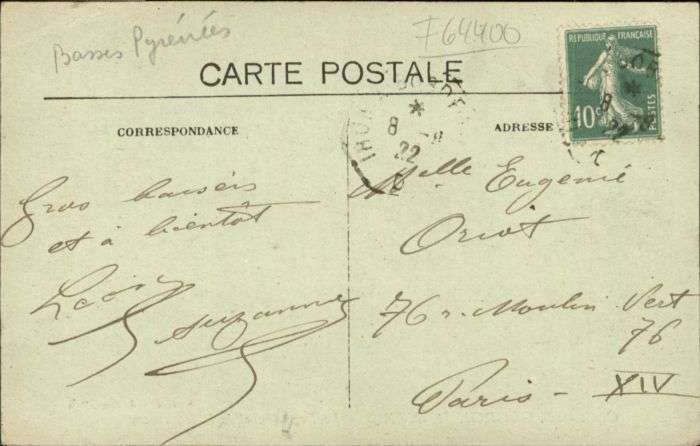 Basses Pyrénées
F64400
CARTE POSTALE
CORRESPONDANCE
ADRESSE
RÉPUBLIQUE FRANÇAISE
10c
POSTES
8
-8
22
Gros baisers
et à bientôt
Suzanne
Melle Eugenie
Oriot
76 r. Moulin Vert
76
Paris - XIV